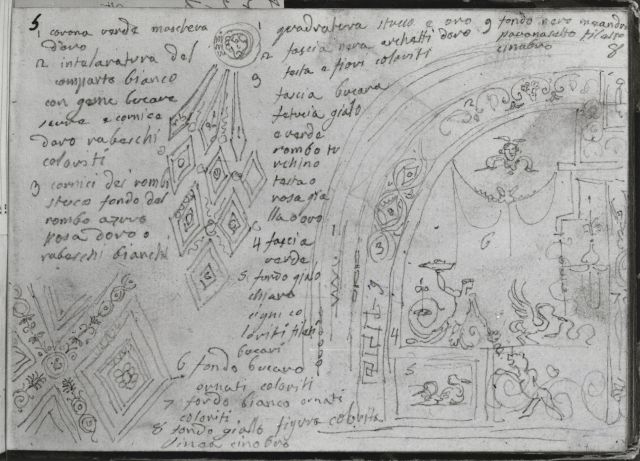 5
1 corona verde maschera
d'oro
2 intelaratura del
comparto bianco
con geme bucare
scure e cornice
doro rabeschi
coloriti
3 cornici dei rombi
stuco fondo del
rombo azuro
rosa d'oro o
rabeschi bianchi
1 quadratura stuco e oro
2 fascia nera archetti d'oro
testa e fiori coloriti
3 fascia bucara
fetucia gialo
e verde
rombo tu
rchino
testa o
rosa gia
lla d'oro
4 fascia
verde
5 fondo gialo
chiaro
cigni co
loriti fileti
bucari
6 fondo bucaro
ornati coloriti
7 fondo bianco ornati
coloriti
8 fondo giallo figure colorite
cinabro
9 fondo nero meandro
pavonaseto filetto
cinabro
8
3
9
4
5
6
7